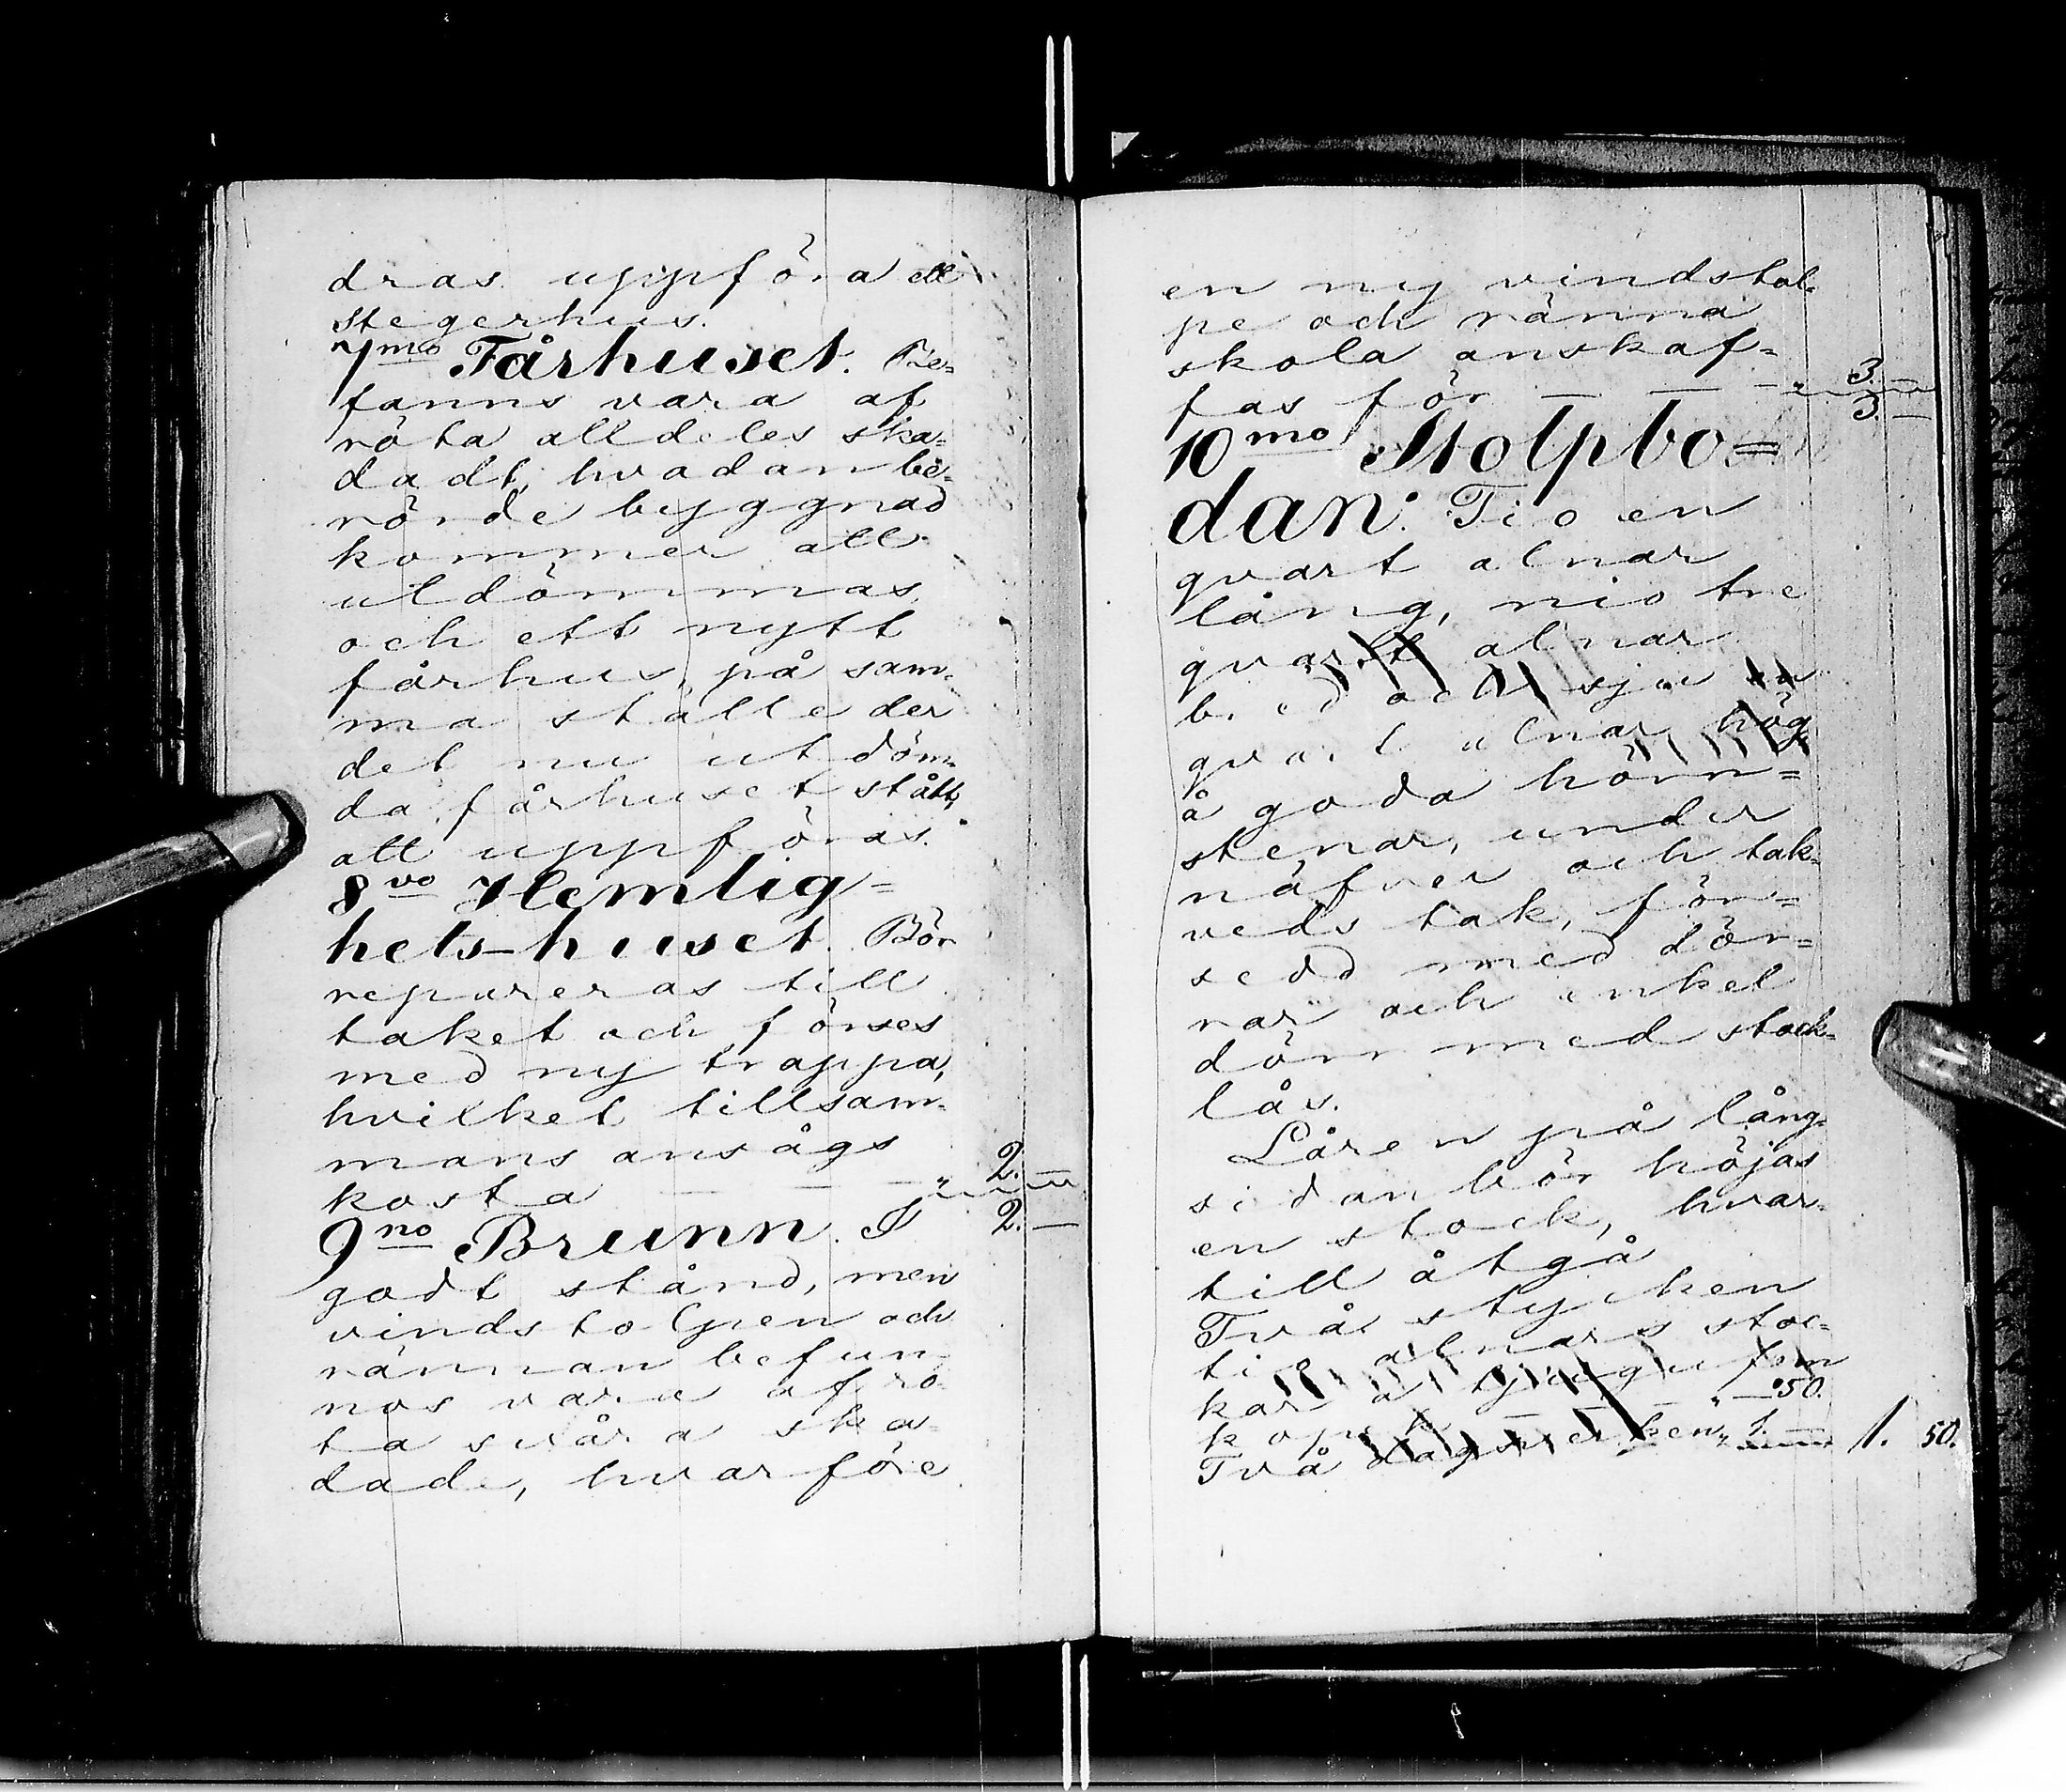 dras uppföra ett
stegerhus.
7mo Fårhuset. Be-
fanns vara af
röta alldeles ska-
dadt, hvadan be-
rörde byggnad
kommer att
utdömmas
och ett nytt
fårhus, på sam-
ma ställe der
det nu utdöm-
da fårhuset stått,
att uppföras.
8vo Hemlig=
hets-huset. Bör
repareras till
taket och förses
med ny trappa,
hvilket tillsam-
mans ansågs
kosta — — — " 2. —
9no Brunn. I 2. —
godt stånd, men
vindstolpen och
rännan befun-
nos vara af rö-
ta svåra ska-
dade, hvarföre
en ny vindstol-
pe och ränna
skola anskaf=
fas för — — — " 3. —
3. —
10mo Stolpbo=
dan: Tio en
qvart alnar
lång, nio tre
qvart alnar
bred och sju en
qvart alnar hög
å goda hörn=
stenar, under
näfver och tak-
veds tak, för=
sedd med dör=
rar och enkel
dörr med stock-
lås.
Låren på lång-
sidan bör höjas
en stock, hvar-
till åtgå
Två stycken
tio alnars stoc=
kar a tjugu fem
kop — — — " — 50.
Två dagsverken " 1. — 1. 50.